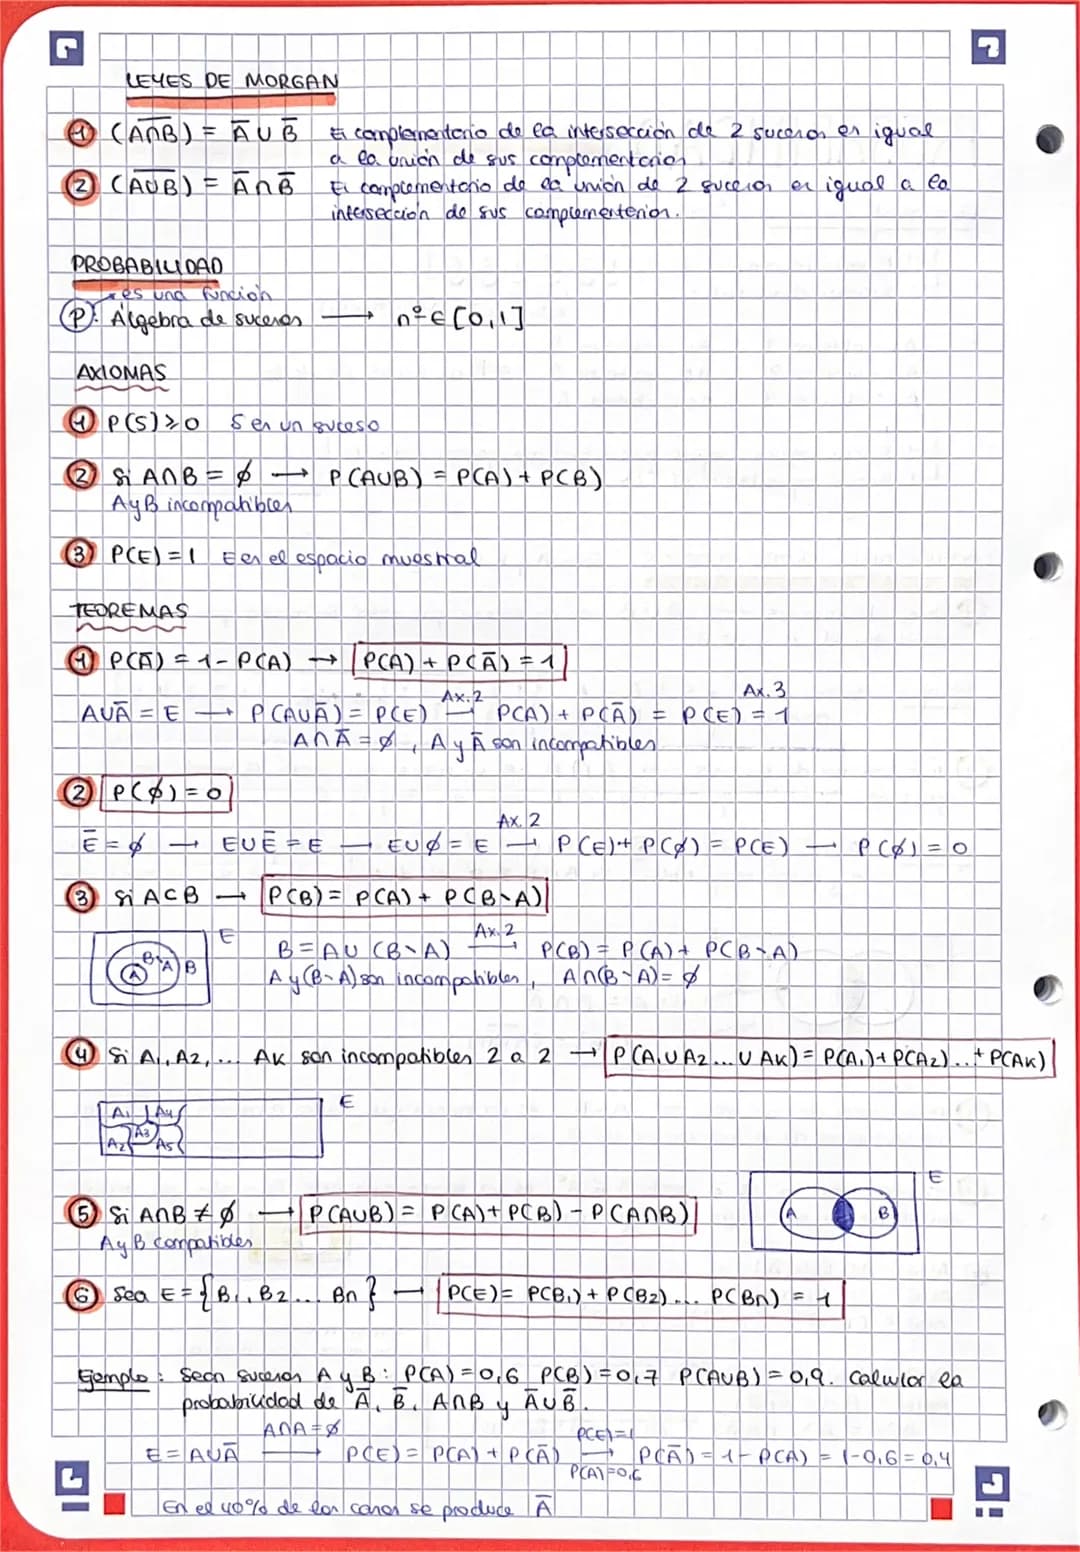 LEYES DE MORGAN
1 (A∩B)̅ = A̅ ∪ B̅ El complementario de la intersección de 2 sucesos es igual
a la unión de sus complementarios
2 (A∪B)̅ = A̅ ∩ B̅ El complementario de la unión de 2 sucesos es igual a la
intersección de sus complementarios.
PROBABILIDAD
es una función
P: Álgebra de sucesos → nº ∈ [0,1]
AXIOMAS
1 P(S) ≥ 0 S es un suceso
2 Si A∩B = ∅ → P(A∪B) = P(A) + P(B)
A y B incompatibles
3 P(E) = 1 E es el espacio muestral
TEOREMAS
1 P(A̅) = 1 - P(A) → P(A) + P(A̅) = 1
A∪A̅ = E → P(A∪A̅) = P(E) Ax.2 → P(A) + P(A̅) = P(E) = 1 Ax.3
A∩A̅ = ∅, A y A̅ son incompatibles
2 P(∅) = 0
E̅ = ∅ → E∪E̅ = E → E∪∅ = E Ax.2 → P(E) + P(∅) = P(E) → P(∅) = 0
3 Si A⊂B → P(B) = P(A) + P(B∖A)
A B∖A B E
B = A∪(B∖A) Ax.2 → P(B) = P(A) + P(B∖A)
A y (B∖A) son incompatibles, A∩(B∖A) = ∅
4 Si A₁, A₂, ... Aκ son incompatibles 2 a 2 → P(A₁∪A₂...∪Aκ) = P(A₁) + P(A₂)...+ P(Aκ)
A₁ A₄ E
A₂ A₃ A₅
5 Si A∩B ≠ ∅ → P(A∪B) = P(A) + P(B) - P(A∩B)
A y B compatibles
A B E
6 Sea E = {B₁, B₂... Bn} → P(E) = P(B₁) + P(B₂)... P(Bn) = 1
Ejemplo: Sean sucesos A y B: P(A) = 0,6 P(B) = 0,7 P(A∪B) = 0,9. Calcular la
probabilidad de A̅, B̅, A∩B y A̅∪B̅.
A∩A = ∅ P(E)=1
E = A∪A̅ → P(E) = P(A) + P(A̅) → P(A̅) = 1 - P(A) = 1 - 0,6 = 0,4
P(A)=0,6
En el 40% de los casos se produce A̅